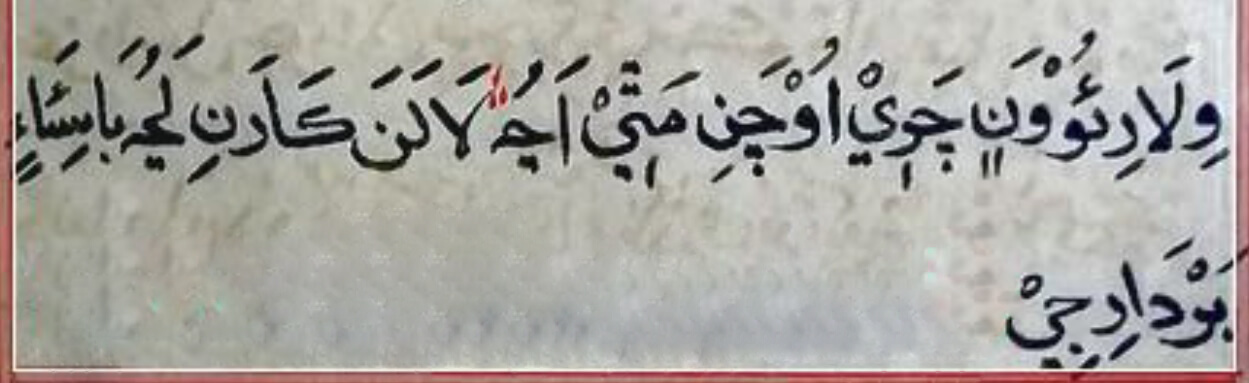 وِلَارِئُوْوَنٍ جَرِيْ اُوْجَنِ مَتِيْ اَجُـ لَالَنَ كَاَدَنِ لَجُـ بَاسِئَاءٍ
بَوْدَارِجِيْ